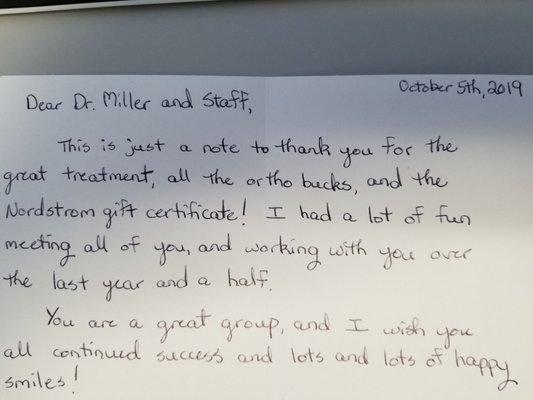 October 5th, 2019
Dear Dr. Miller and Staff,
This is just a note to thank you for the
great treatment, all the ortho bucks, and the
Nordstrom gift certificate! I had a lot of fun
meeting all of you, and working with you over
the last year and a half.
You are a great group, and I wish you
all continued success and lots and lots of happy
smiles!